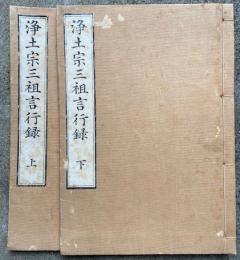 浄土宗三祖言行録 上
浄土宗三祖言行録 下